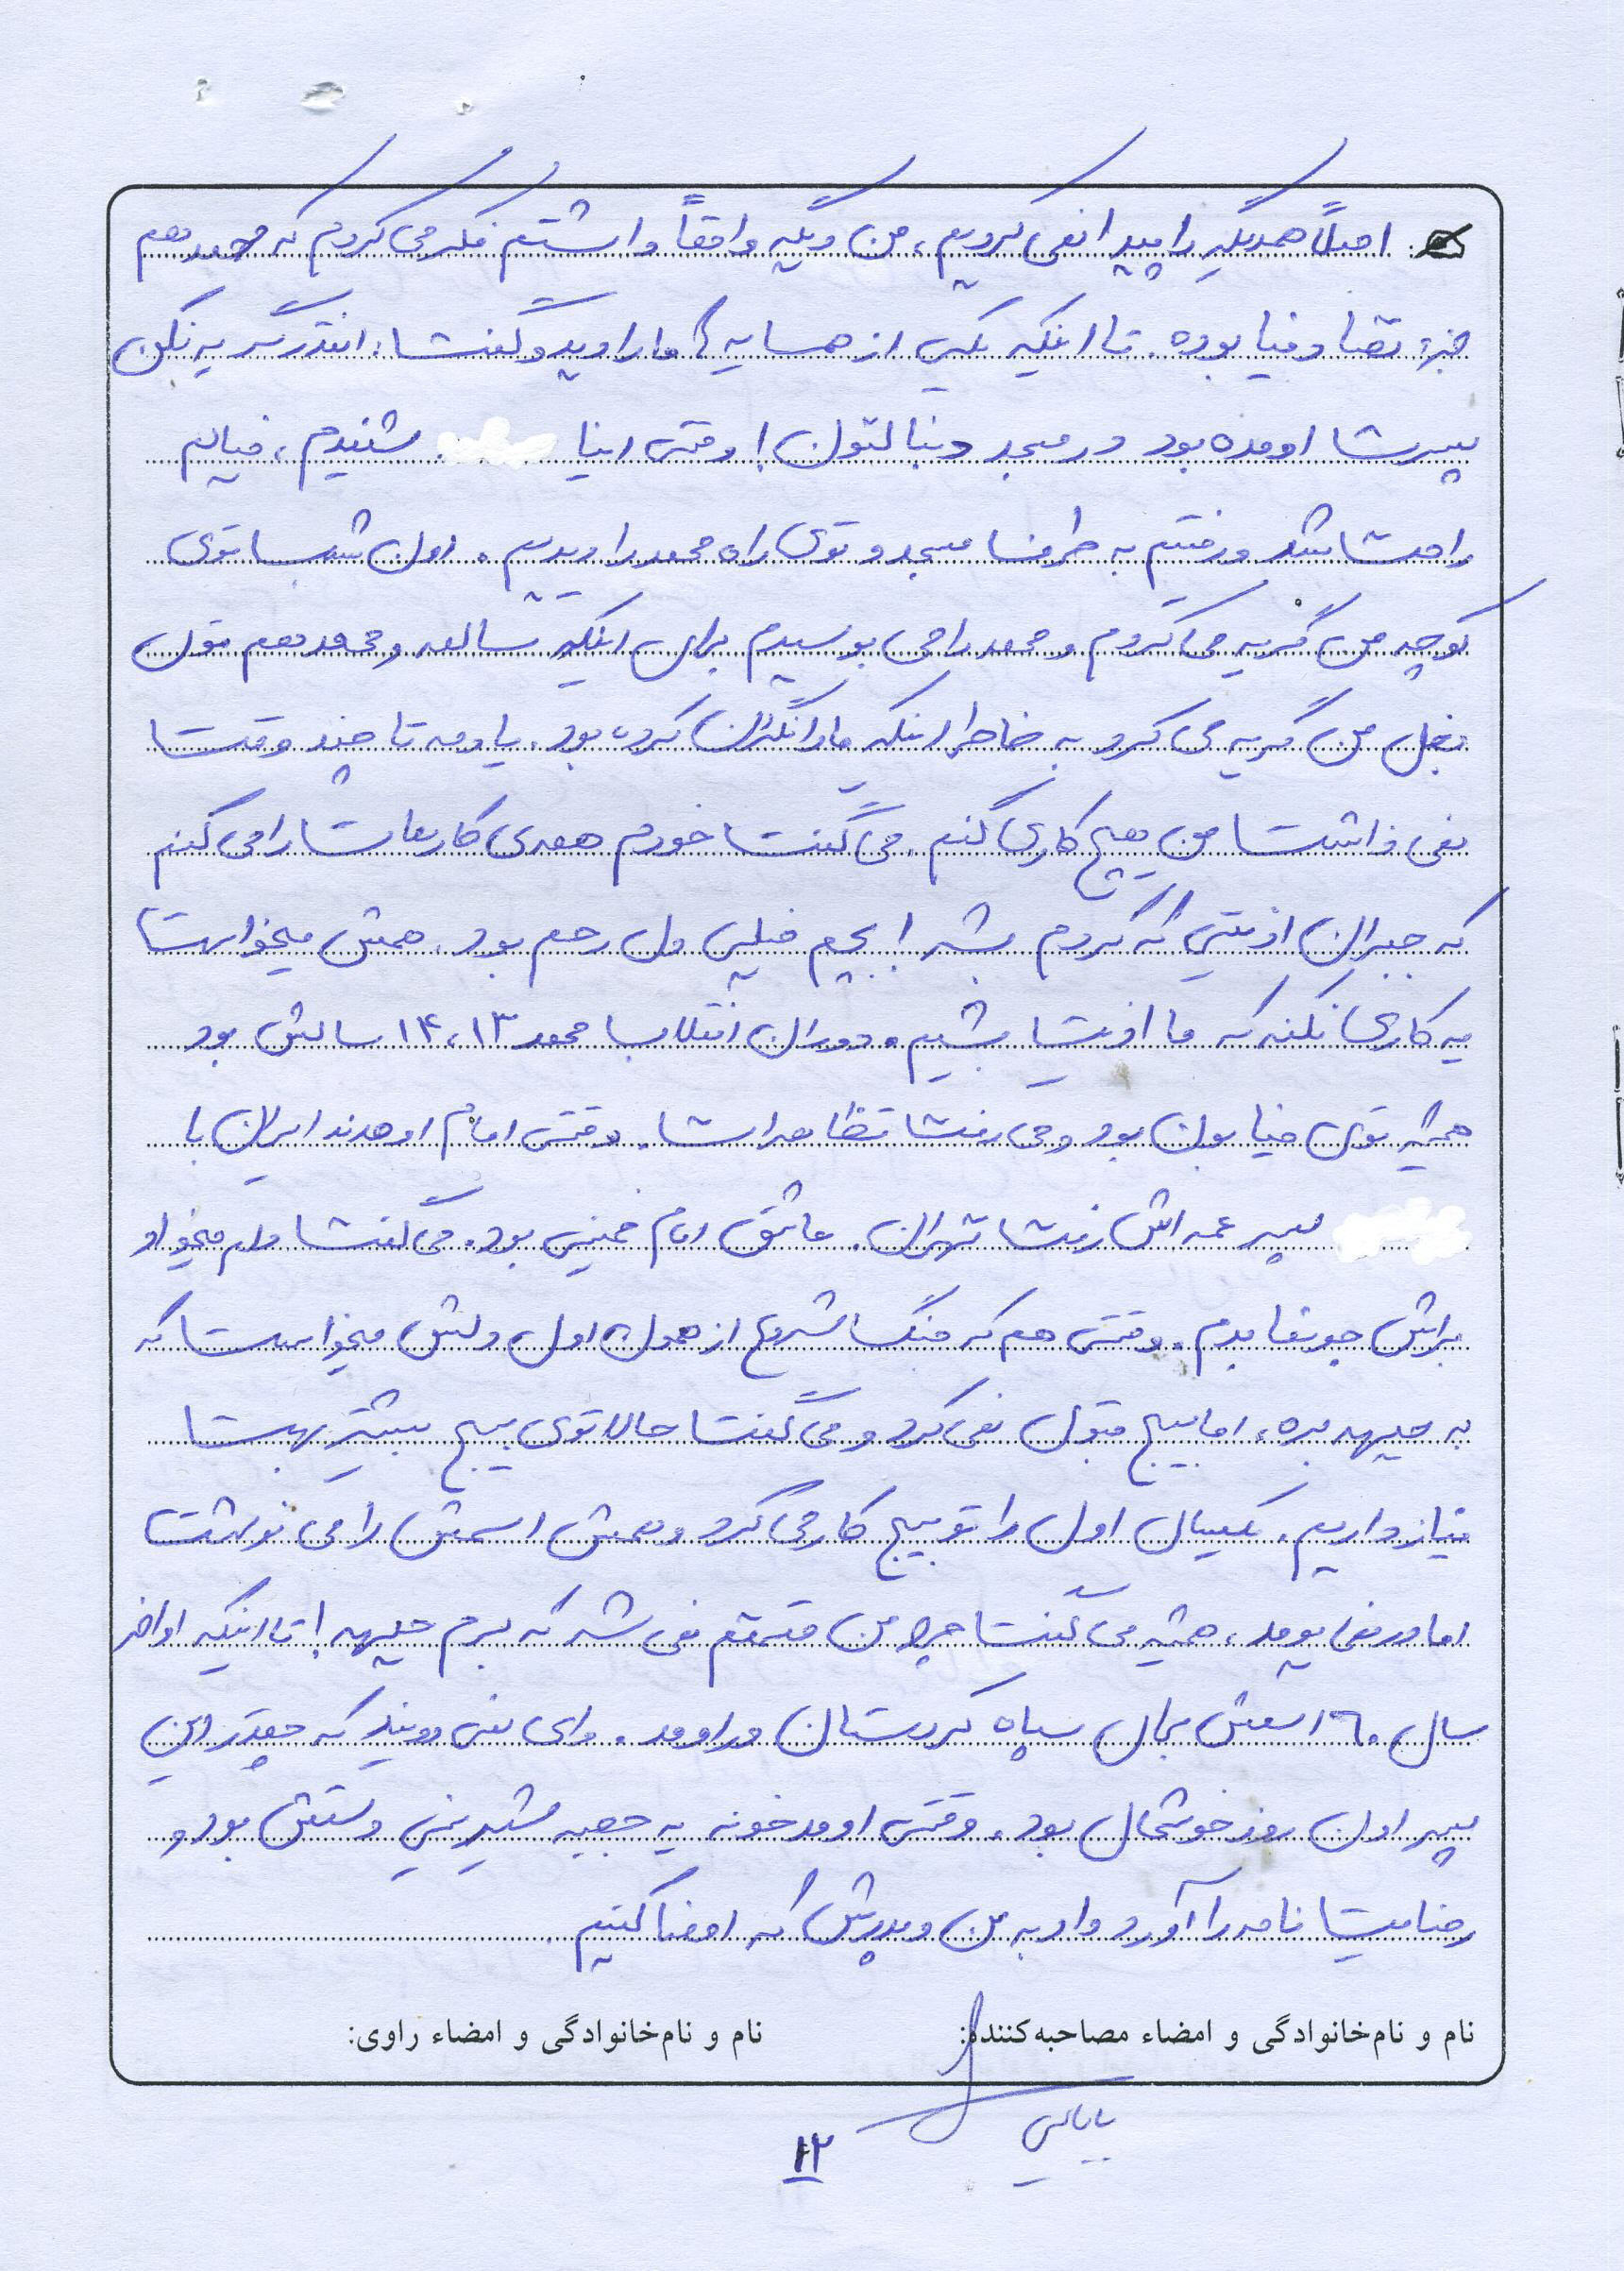 اصلاً همدیگر را پیدا نمی کردیم، من دیگه واقعاً داشتم فکر می کردم که محمد هم
جزء تصادفیا بوده. تا اینکه یکی از همسایه ها ما را دید و گفت: انقدر گریه نکن
پسرت اومده بود در مسجد دنبالتون! وقتی اینا شنیدم، خیالم
راحت شد و رفتیم به طرف مسجد و توی راه محمد را دیدیم. اون شب توی
کوچه من گریه می کردم و محمد را می بوسیدم برای اینکه سالمه و محمد هم توی
بغل من گریه می کرد به خاطر اینکه ما را نگران کرده بود. یادمه تا چند وقت
نمی ذاشت من هیچ کاری کنم. می گفت خودم همه ی کارهات را می کنم
که جبران اذیتی که کردم بشه! بچم خیلی دل رحم بود. همش میخواست
یه کاری نکنه که ما اذیت بشیم. دوران انقلاب محمد ۱۳، ۱۴ سالش بود
همش توی خیابون بود و می رفت تظاهرات. وقتی امام اومدند ایران با
پسر عمه اش رفت تهران. عاشق امام خمینی بود. می گفت دلم میخواد
براش جونما بدم. وقتی هم که جنگ شروع از همون اول دلش میخواست که
به جبهه بره، اما بسیج قبول نمی کرد و می گفت حالا توی بسیج بیشتر بهت
نیاز داریم. یکسال اول را تو بسیج کار می کرد و همش اسمش را می نوشت
اما در نمی یومد، همش می گفت چرا من قسمتم نمی شه که برم جبهه! تا اینکه اواخر
سال ۶۰ اسمش برای سپاه کردستان در اومد. وای نمی دونید که چقدر این
پسر اون روز خوشحال بود. وقتی اومد خونه یه جعبه شیرینی دستش بود و
رضایت نامه را آورد داد به من و پدرش که امضا کنیم.
نام و نام‌خانوادگی و امضاء مصاحبه‌کننده: نام و نام‌خانوادگی و امضاء راوی:
بابایی
۱۲